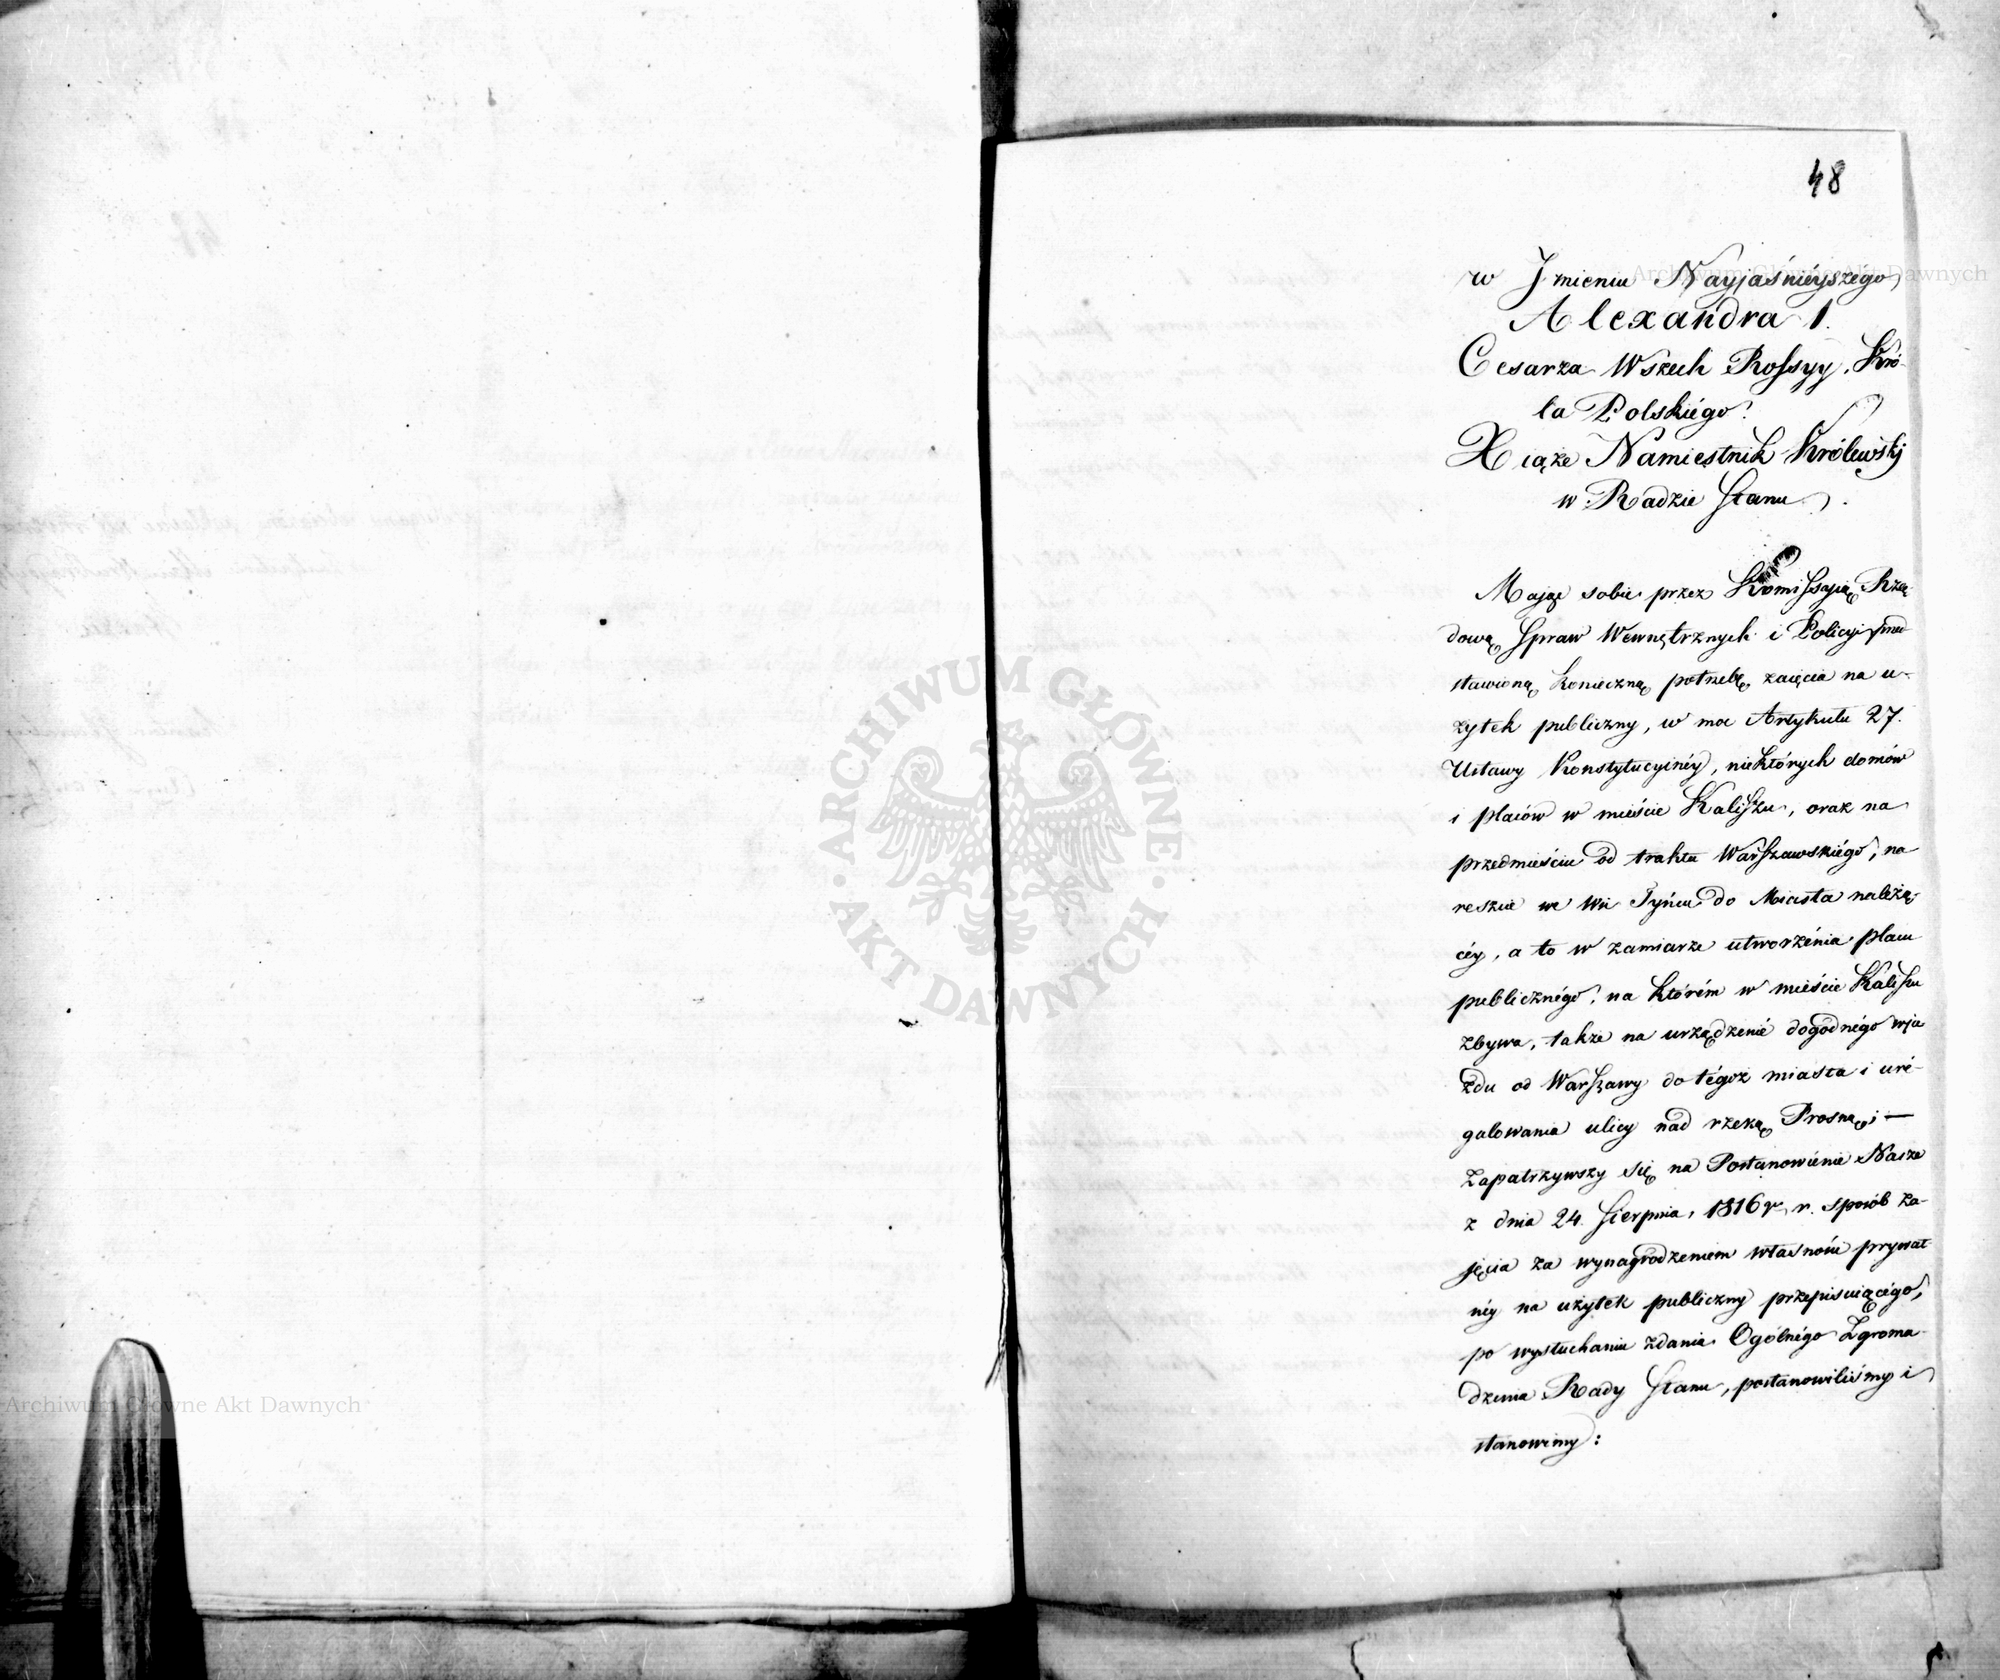 48
w Jmieniu Nayjaśnieyszégo
Alexandra 1.
Cesarza Wszech Rossyy, Kró-
la Polskiégo.
Xiąże Namiestnik Królewskj
w Radzie Stanu.
Mając sobie przez Kommissyią Rzą-
dową Spraw Wewnętrznych i Policyi przed-
stawioną konieczną potrzebę zaięcia na u-
żytek publiczny, w moc Artykułu 27.
Ustawy Konstytucyinéy, niektórych domów
i placów w mieście Kaliszu, oraz na
przedmieściu od traktu Warszawskiégo, na
reszcie we Wsi Tyńcu do Miasta należą-
céy, a to w zamiarze utworzénia placu
publicznégo, na którém w mieście Kaliszu
zbywa, także na urządzenié dogodnégo wja
zdu od Warszawy do tégoż miasta i uré-
gulowania ulicy nad rzeką Prosną; —
Zapatrzywszy się na Postanowienie Nasze
z dnia 24. Sierpnia, 1816 r. sposób za-
jęcia za wynagrodzeniem własności prywat-
néy na użytek publiczny przepisuiącégo,
po wysłuchaniu zdania Ogólnégo Zgroma-
dzenia Rady Stanu, postanowiliśmy i
stanowimy:
ARCHIWUM GŁÓWNE
· AKT DAWNYCH ·
Archiwum Główne Akt Dawnych
Archiwum Główne Akt Dawnych